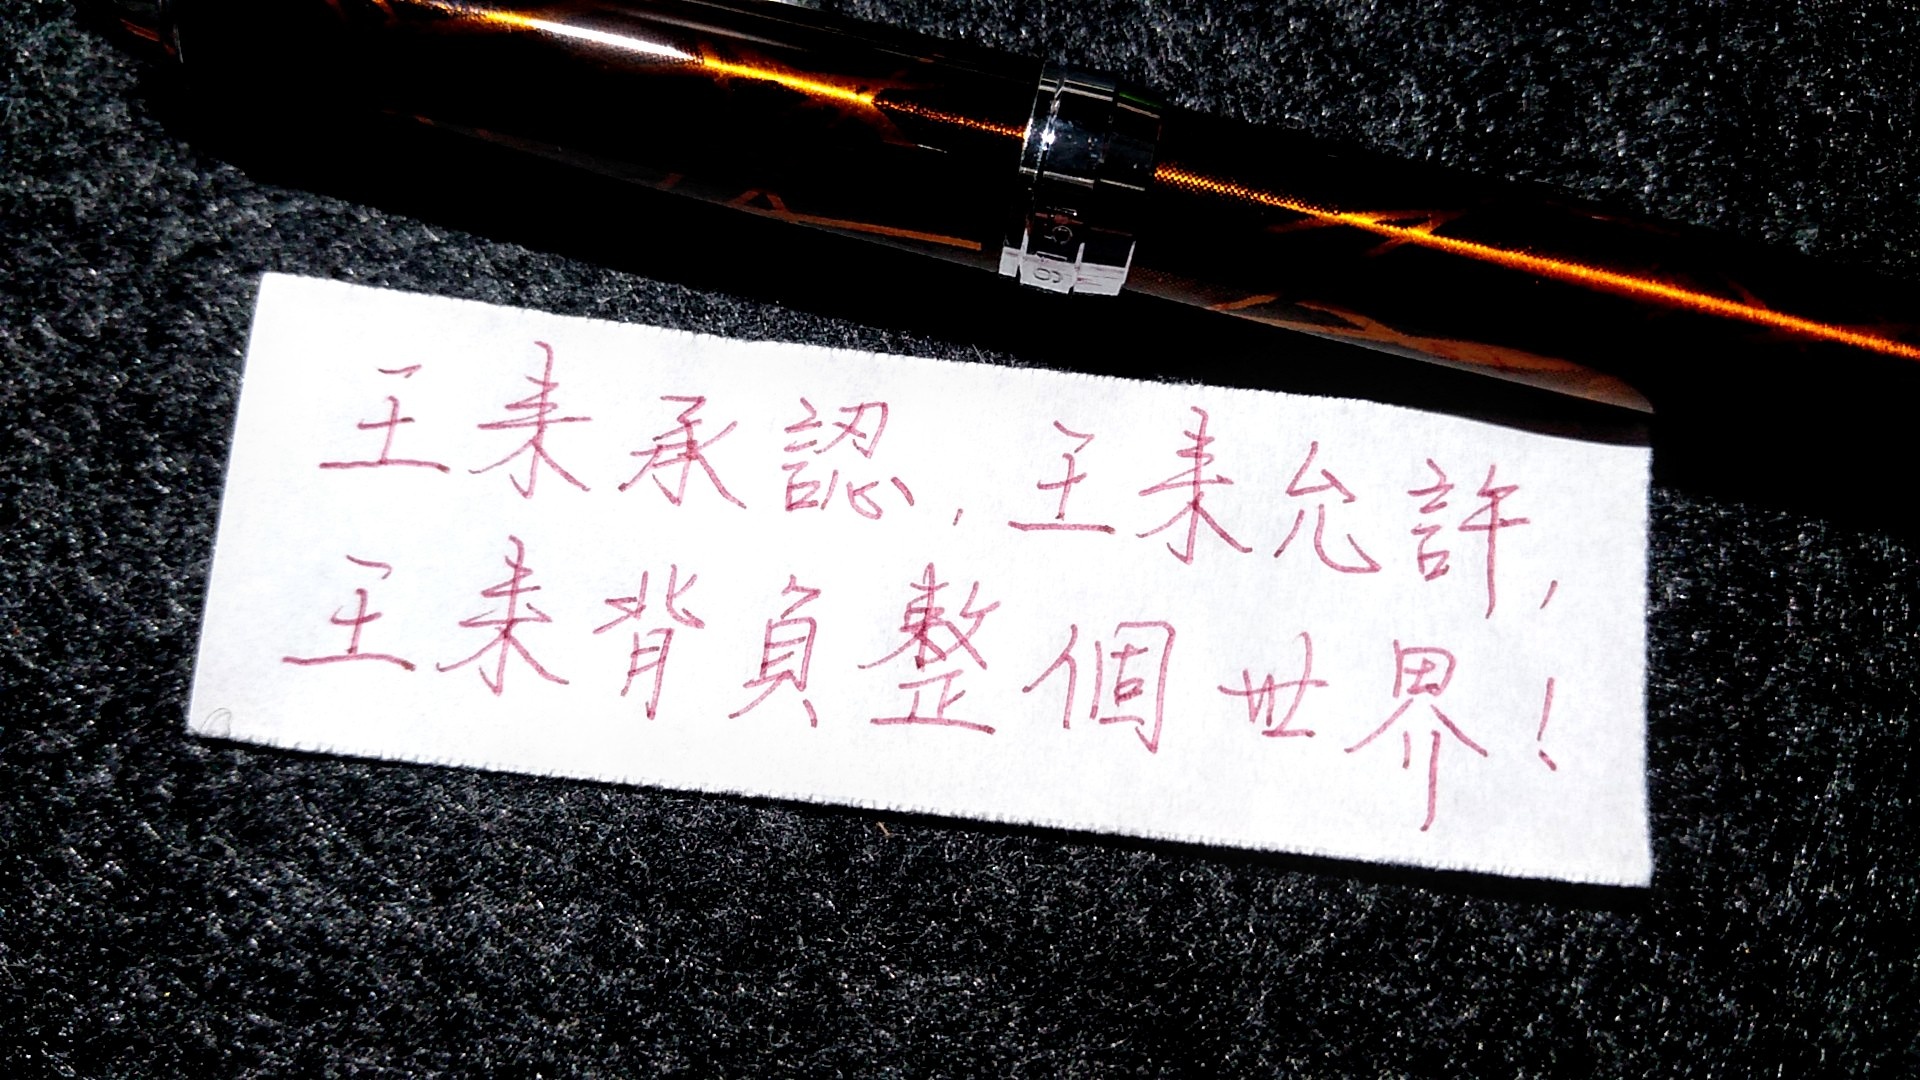 王来承認,王来允許,
王来背負整個世界!